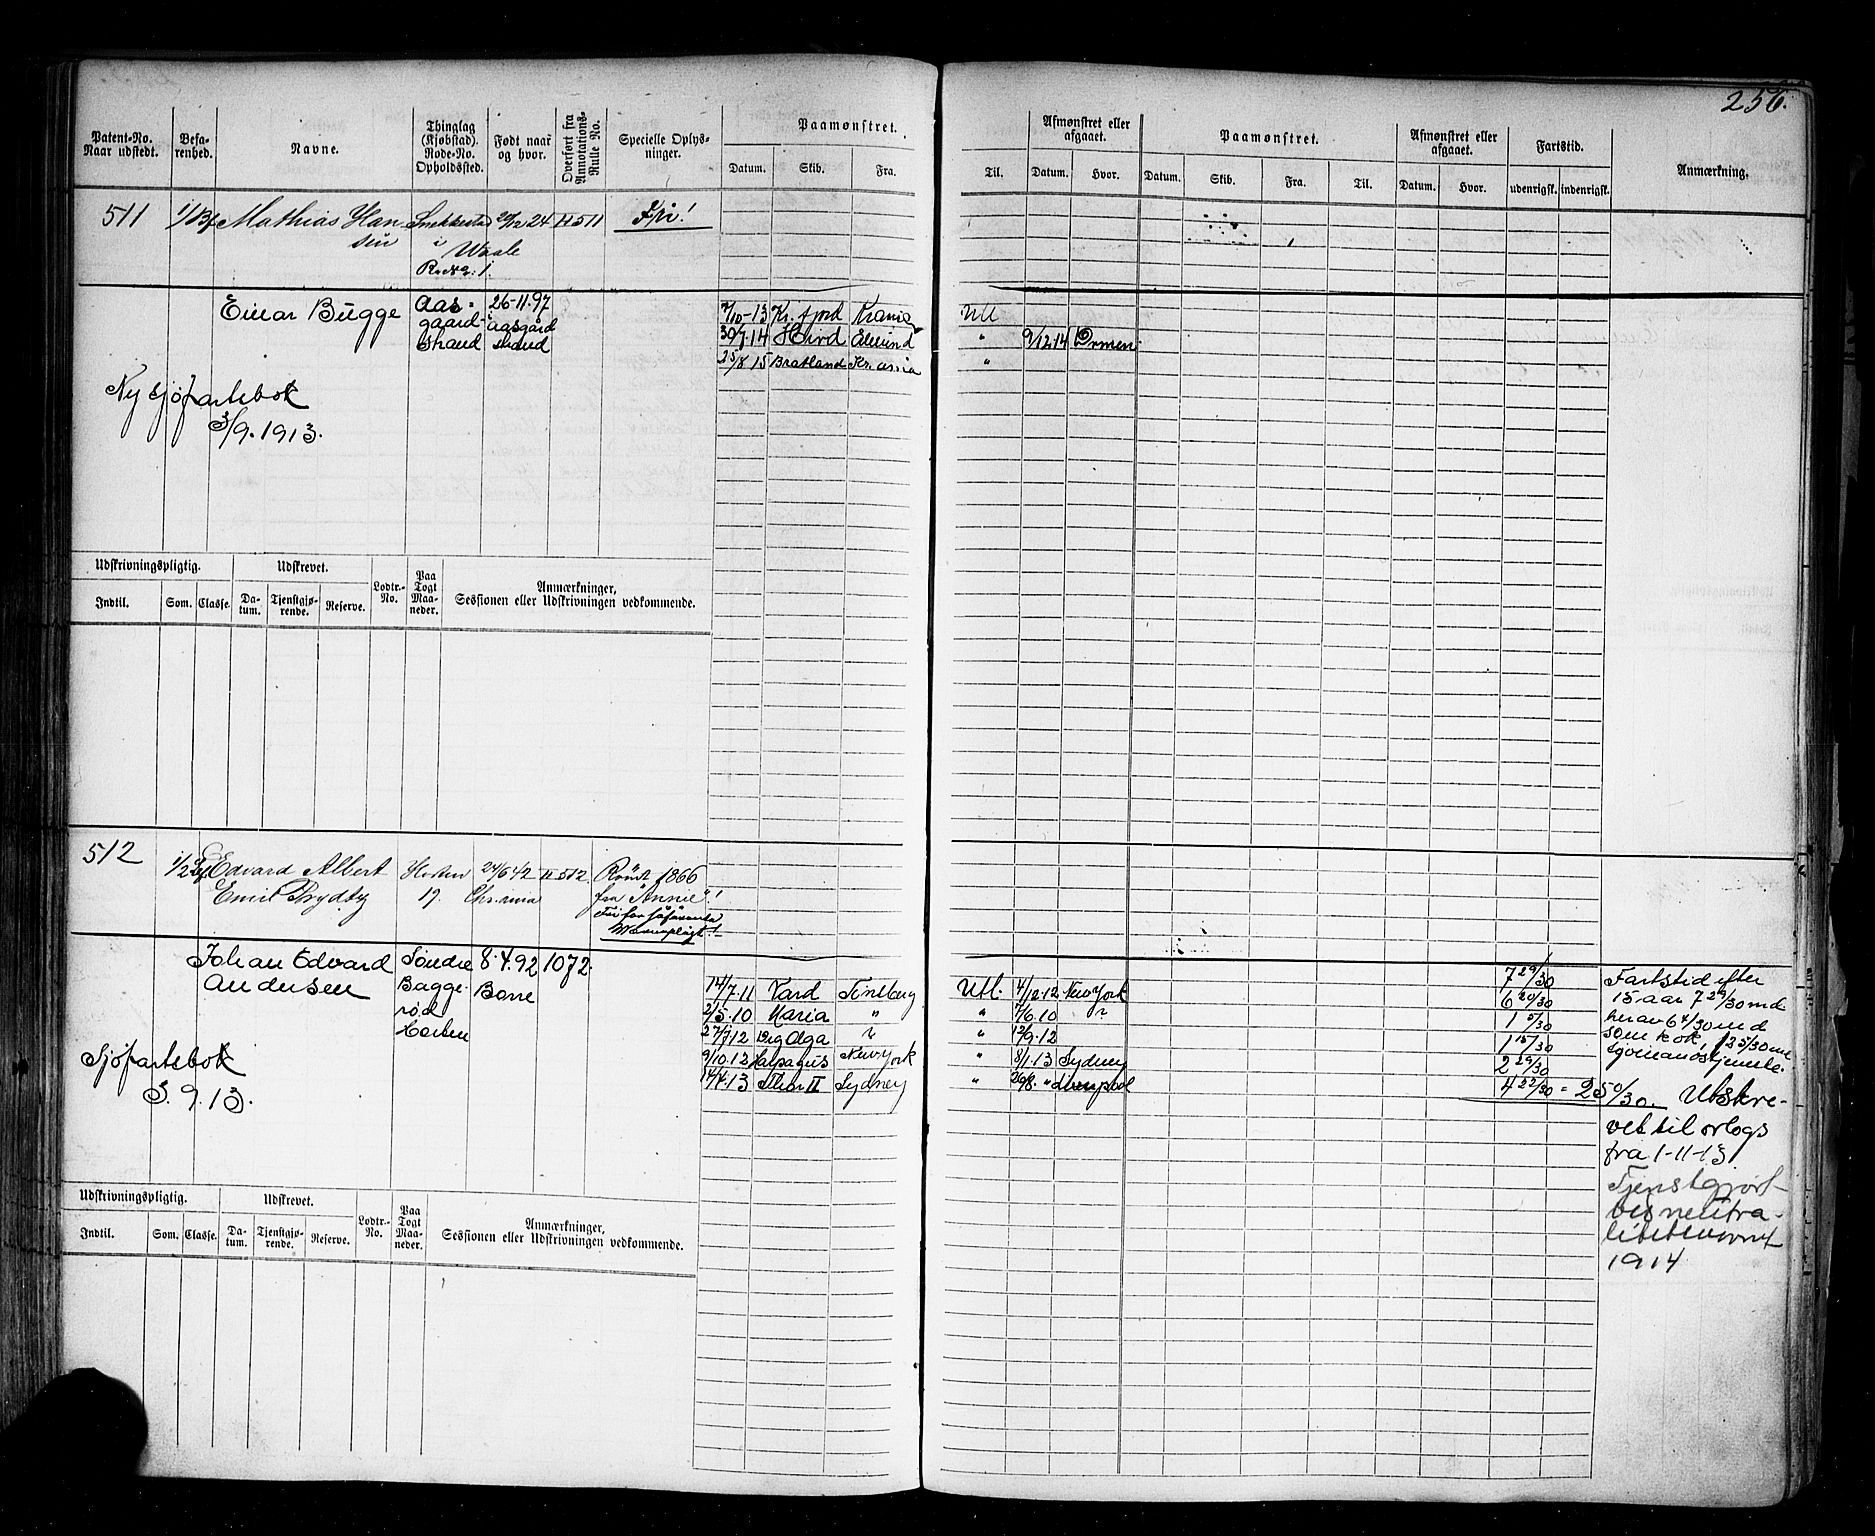 256.
Patent-No. Naar udstedt.
Befa-renhed.
Navne.
Thinglag (Kjøbstad). Rode-No. Opholdssted.
Født naar og hvor.
Overført fra Annotations-Rulle No.
Specielle Oplys-ninger.
Paamønstret.
Datum. Skib. Fra.
Til.
Afmønstret eller afgaaet.
Datum. Hvor.
Paamønstret.
Datum. Skib. Fra. Til.
Afmønstret eller afgaaet.
Datum. Hvor.
Fartstid.
udenrigsk. indenrigsk.
Anmærkning.
511 Mathias Han- 20/12 24 II 511 Fri!
sen i
Waale
R.No: 1.
Einar Bugge Aas- 26-11.97 7/10-13 Kr. fjord Krania Utl
gaard- aasgård 30/7.14 Hird " 9/12 14
strand strand 25/8 15 Bratland Kr.ania "
Ny sjøfartsbok
3/9. 1913.
Udskrivningspligtig. Udskrevet. Lodtr.-No. Paa Togt Maa-neder. Anmærkninger,
Sessionen eller Udskrivningen vedkommende.
Indtil. Som. Classe. Da-tum. Tjenstgjø-rende. Reserve.
512 Edvard Albert Horten 24/6 42 II 512 Rømt 1866
Emil Brydby 17. Chr.ania fra "Annie"!
Fri for
Værnepligt!
Johan Edvard Søndre 8.4.92 1072.
Andersen Bagge- Borre
rød
Horten
14/7.11 Vard Utl. 4/12.12 New York
2/5.10 Maria " " 7/6.10 "
27/7 12 Brig Olga " " 12/9.12
9/10.12 New York " 8/1.13 Sydney
14/4.13 Thor II Sydney " 26/8. " Liverpool
Sjøfartsbok
3.9.13.
7 29/30 Fartstid efter
6 20/30 15 aar 7 29/30 md.
1 5/30 herav 6 4/30 md
1 15/30 som kok, 1 25/30 md
2 29/30
4 22/30 = 25 0/30. Utskre-
vet til orlogs
fra 1-11-13
Tjenstgjort
ved neutra-
litetsvernet
1914
Udskrivningspligtig. Udskrevet. Lodtr.-No. Paa Togt Maa-neder. Anmærkninger,
Sessionen eller Udskrivningen vedkommende.
Indtil. Som. Classe. Da-tum. Tjenstgjø-rende. Reserve.